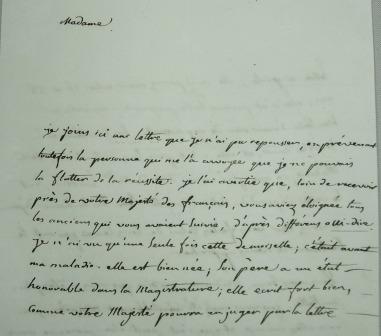 Madame
je joins ici une lettre que je n'ai pu repousser, en prévenant
toutefois la personne qui me l'a envoyée que je ne pouvais
la flatter de la réussite. je l'ai avertie que, loin de recevoir
près de vôtre Majesté des français, vous aviez éloignée tous
les anciens qui vous avaient suivie, d'après différens ouï-dire.
je n'ai vu qu'une seule fois cette demoiselle; c'était avant
ma maladie. elle est bien née; son père a un état
honorable dans la Magistrature; elle ecrit fort bien,
comme vôtre Majesté pourra en juger par la lettre